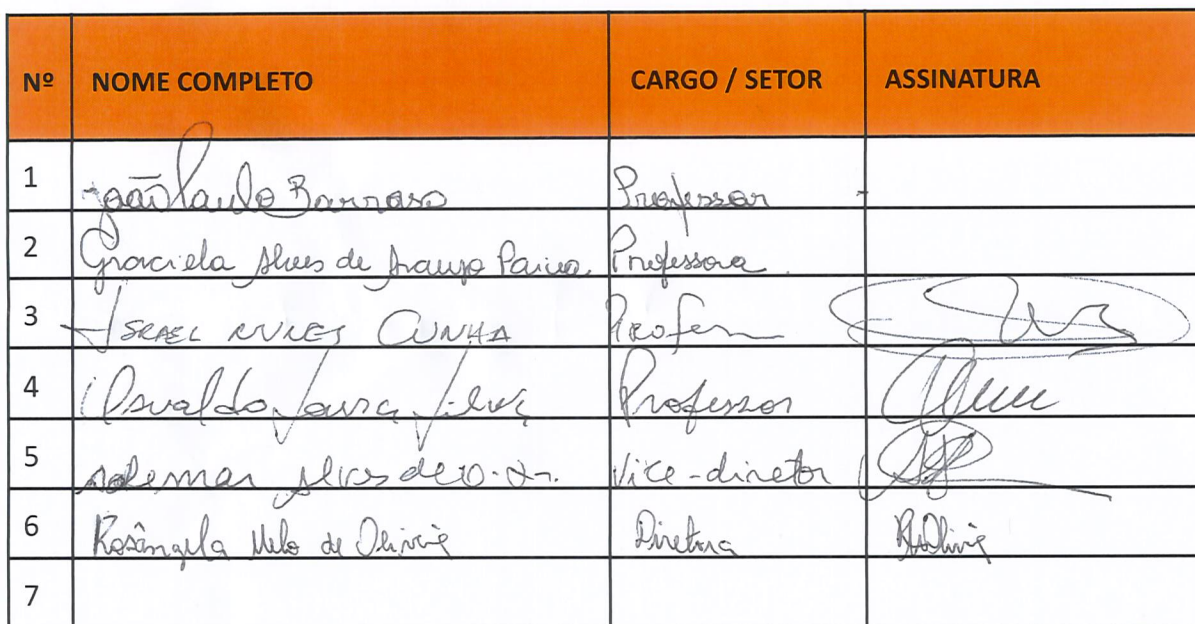 Nº NOME COMPLETO CARGO / SETOR ASSINATURA
1 João Paulo Barroso Professor
2 Graciela Alves de Araujo Professora
3 ISRAEL NUNES CUNHA
4 Osvaldo Silva Professor
5 Alves de O. Jr. Vice-diretor
6 Rosângela Melo de Oliveira Diretora
7